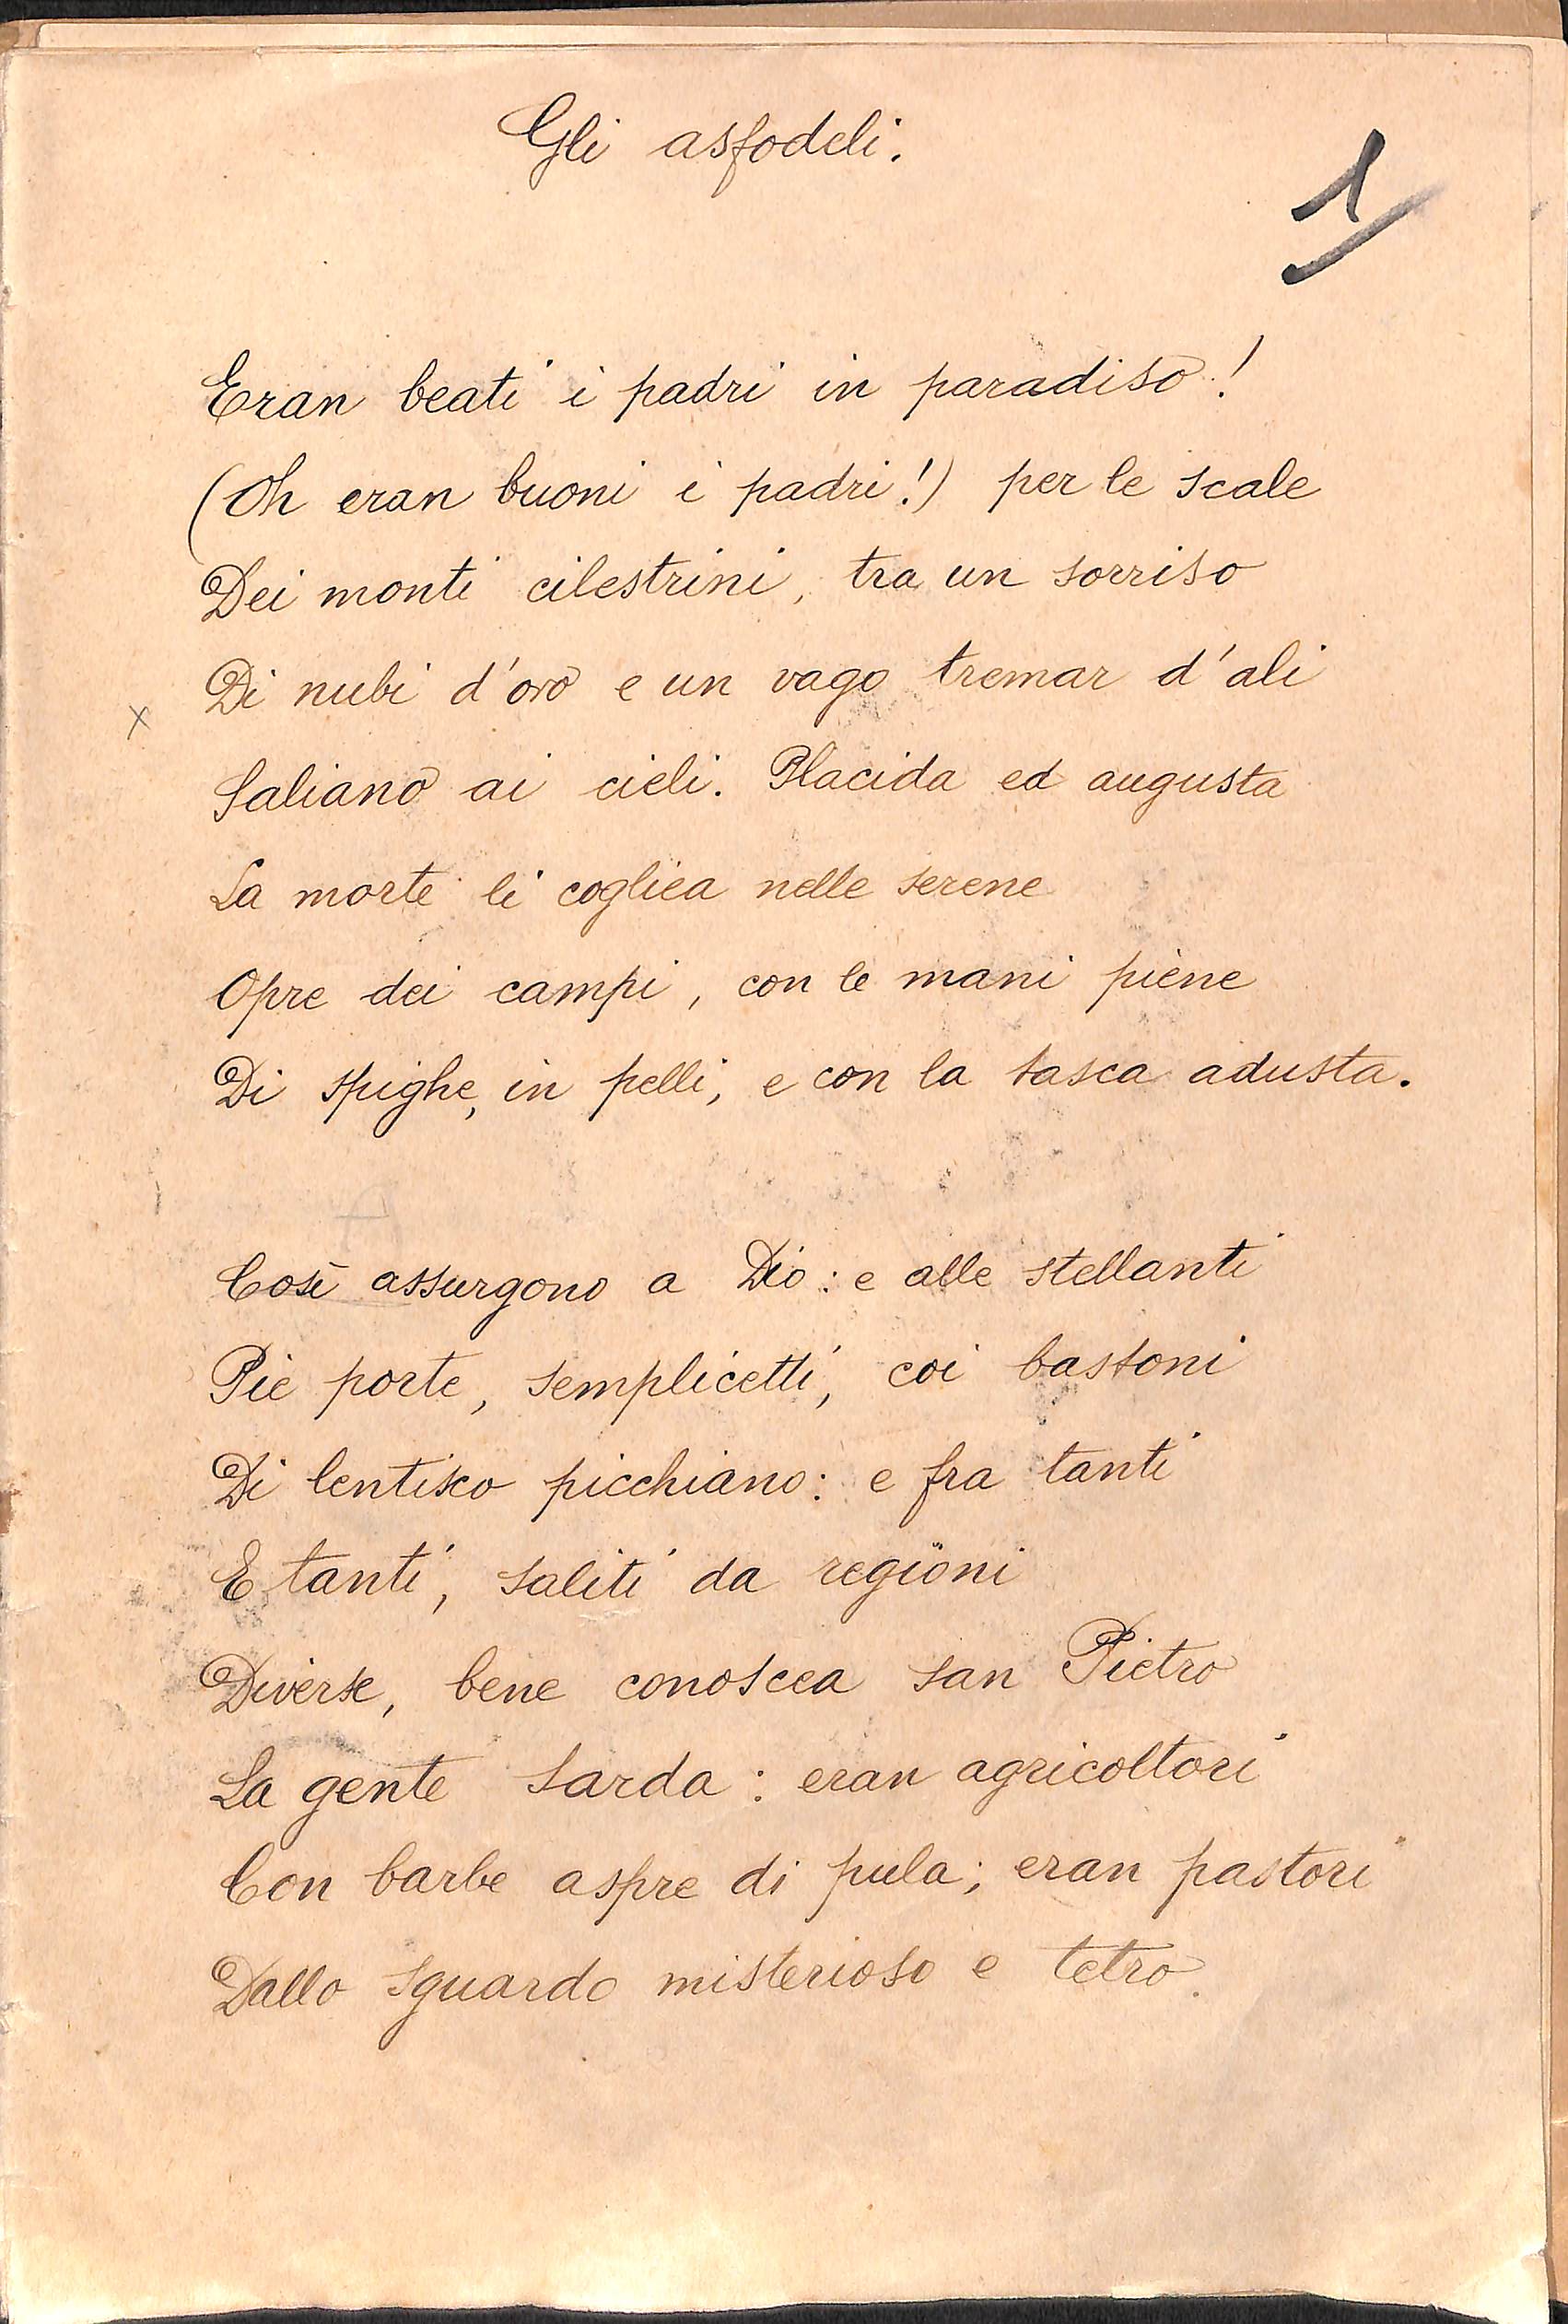 Gli asfodeli.
1
Eran beati i padri in paradiso!
(Oh eran buoni i padri!) per le scale
Dei monti cilestrini, tra un sorriso
Di nubi d'oro e un vago tremar d'ali
x
Saliano ai cieli. Placida ed augusta
La morte li cogliea nelle serene
Opre dei campi, con le mani piene
Di spighe, in pelli, e con la tasca adusta.
Così assurgono a Dio: e alle stellanti
Pie porte, semplicetti, coi bastoni
Di lentisco picchiano: e fra tanti
E tanti, saliti da regïoni
Diverse, bene conoscea san Pietro
La gente sarda: eran agricoltori
Con barbe aspre di pula; eran pastori
Dallo sguardo misterioso e tetro.